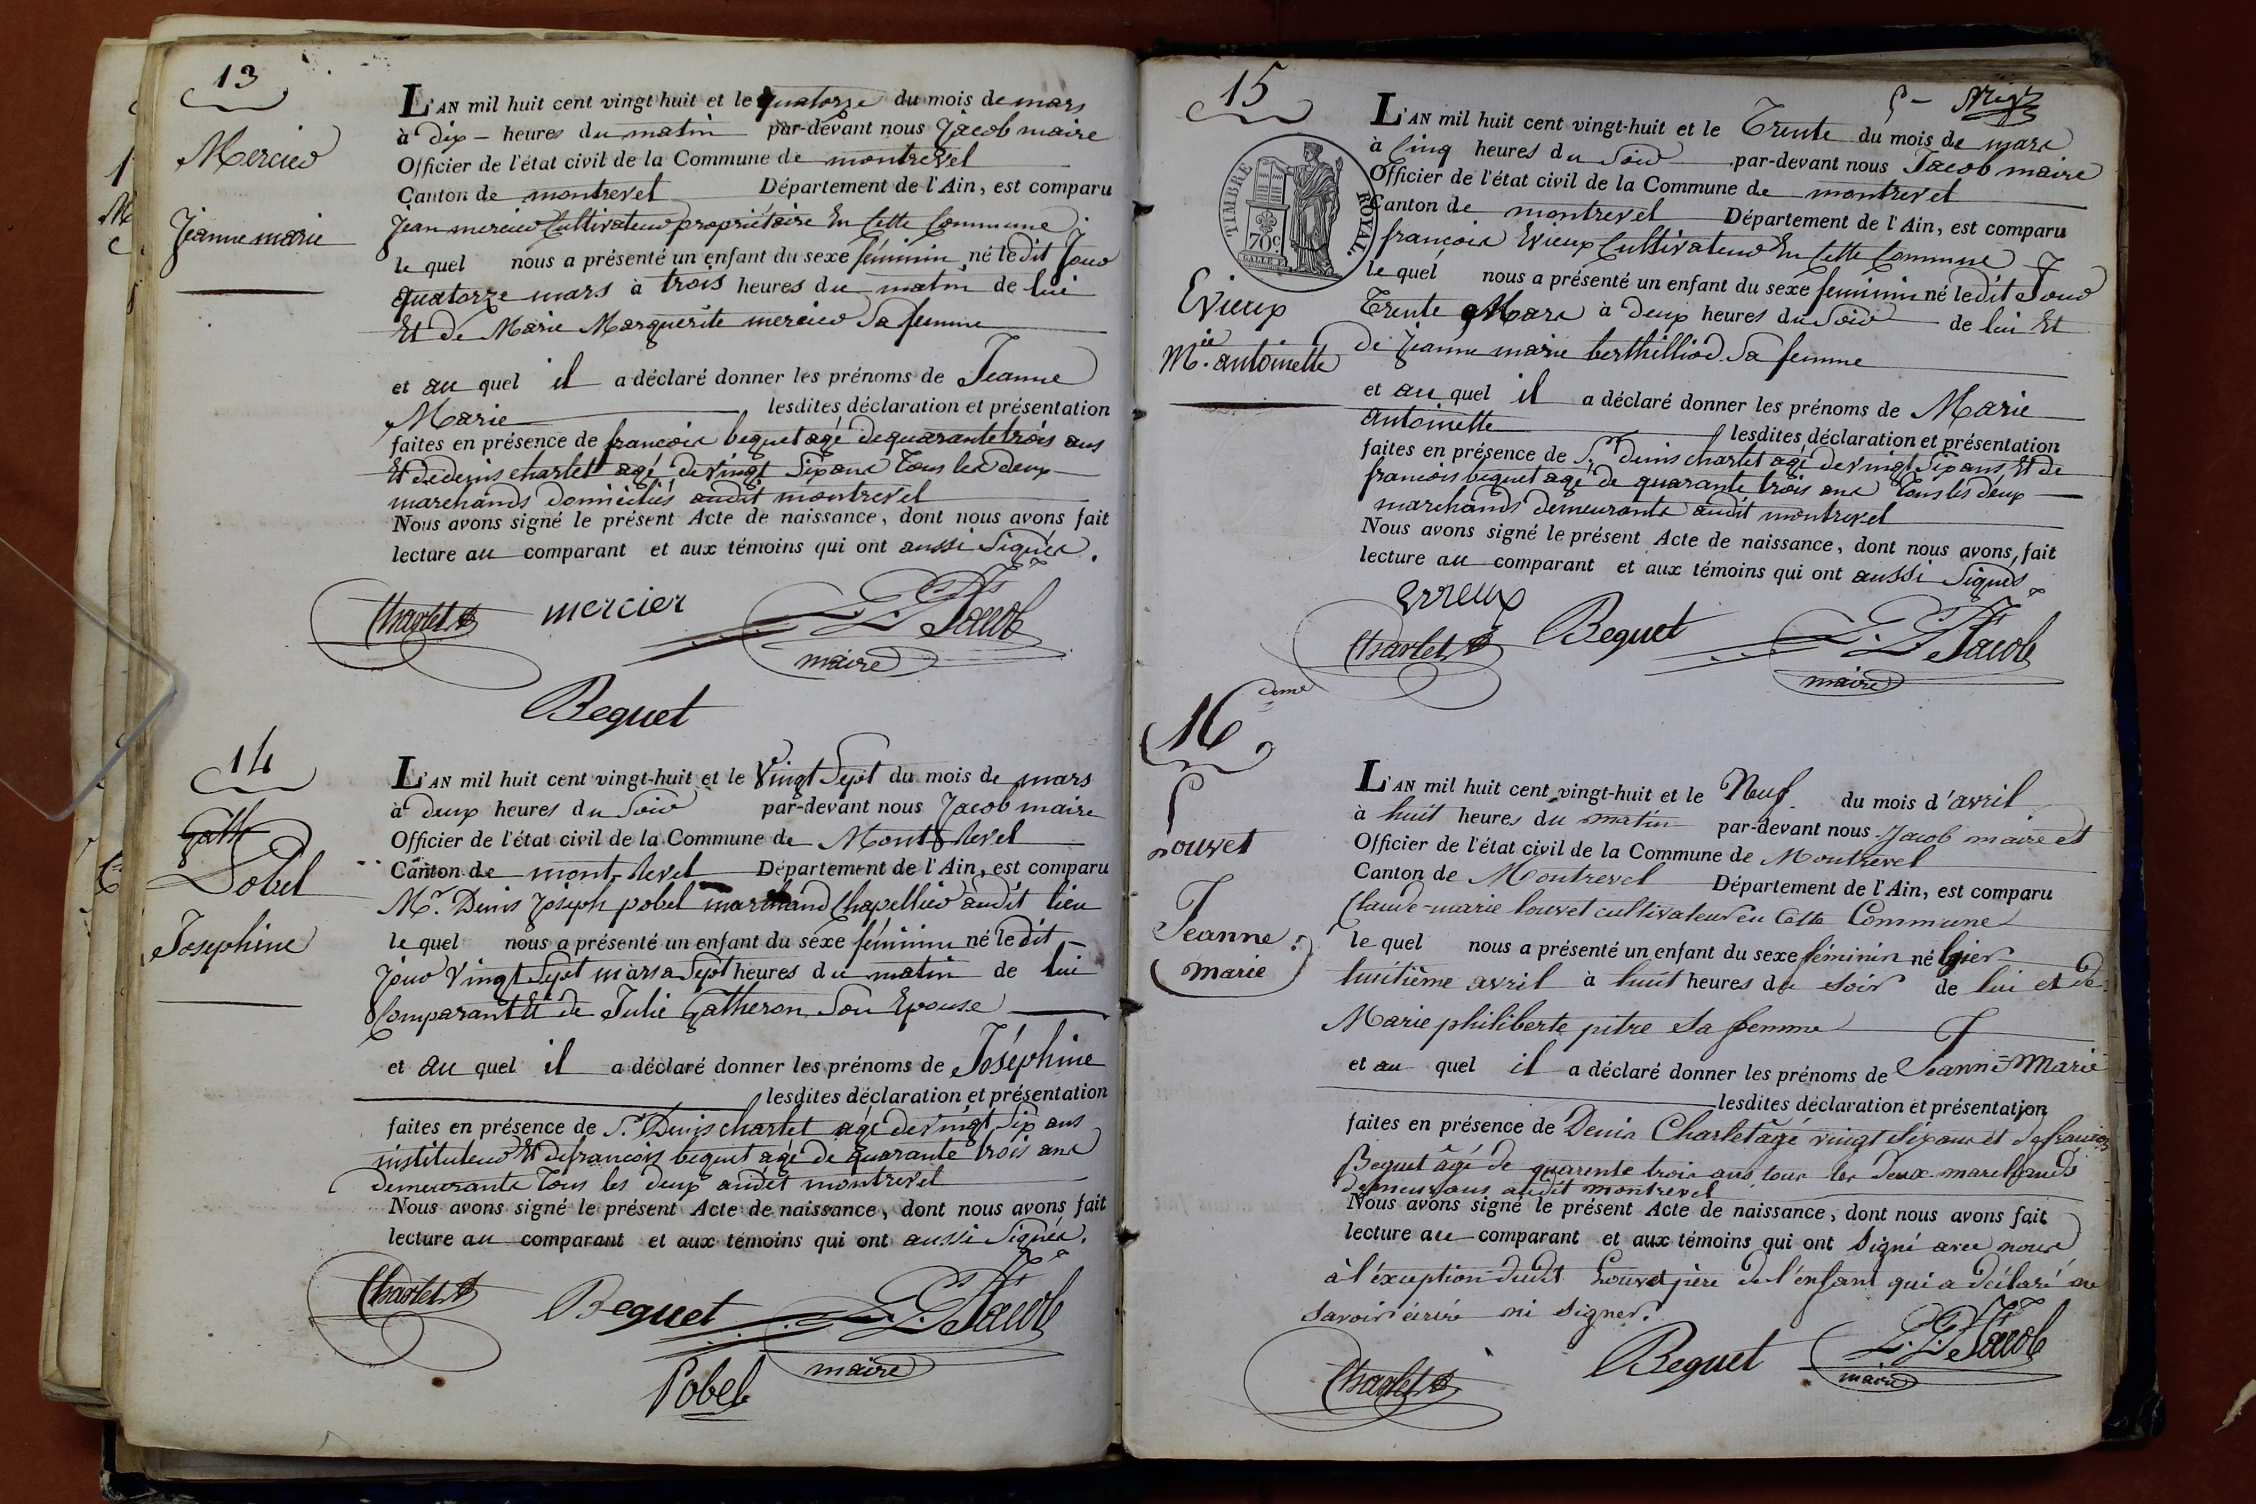 13
Mercier
Jeanne marie
L'AN mil huit cent vingt huit et le quatorze du mois de mars
à dix heures du matin par-devant nous Jacob maire
Officier de l'état civil de la Commune de montrevel
Canton de montrevel Département de l'Ain, est comparu
Jean mercier Cultivateur propriétaire En Cette Commune
le quel nous a présenté un enfant du sexe féminin né ledit Jour
quatorze mars à trois heures du matin de lui
Et de Marie Marguerite mercier Sa femme
et au quel il a déclaré donner les prénoms de Jeanne
Marie lesdites déclaration et présentation
faites en présence de francois bequet agé de quarante trois ans
Et de denis charlet agé de vingt Six ans Tous les deux
marchands domiciliés audit montrevel
Nous avons signé le présent Acte de naissance, dont nous avons fait
lecture au comparant et aux témoins qui ont aussi Signés.
Charlet mercier Jacob
maire
Bequet
14
gath
Pobel
Josephine
L'AN mil huit cent vingt-huit et le Vingt Sept du mois de mars
à deux heures du Soir par-devant nous Jacob maire
Officier de l'état civil de la Commune de Mont-revel
Canton de mont-revel Département de l'Ain, est comparu
Mr. Denis Joseph pobel marchand Chapellier audit lieu
le quel nous a présenté un enfant du sexe féminin né le dit
Jour Vingt Sept mars a Sept heures du matin de lui
Comparant Et de Julie Gatheron Son Epouse
et au quel il a déclaré donner les prénoms de Joséphine
lesdites déclaration et présentation
faites en présence de Sr. Denis charlet agé de vingt Six ans
instituteur Et de francois bequet agé de quarante trois ans
demeurants Tous les deux audit montrevel
Nous avons signé le présent Acte de naissance, dont nous avons fait
lecture au comparant et aux témoins qui ont aussi Signés.
Charlet Bequet Jacob
maire
Pobel
15
TIMBRE ROYAL.
70c
Evieux
Mie. antoinette
L'AN mil huit cent vingt-huit et le Trente du mois de mars
à Cinq heures du Soir par-devant nous Jacob maire
Officier de l'état civil de la Commune de montrevel
Canton de montrevel Département de l'Ain, est comparu
françois Evieux Cultivateur En Cette Commune
le quel nous a présenté un enfant du sexe feminin né ledit Jour
Trente Mars à deux heures du Soir de lui Et
de Jeanne marie berthilliod Sa femme
et au quel il a déclaré donner les prénoms de Marie
antoinette lesdites déclaration et présentation
faites en présence de Sr. Denis charlet agé de vingt Six ans, Et de
francois bequet agé de quarante trois ans Tous les deux
marchands demeurants audit montrevel
Nous avons signé le présent Acte de naissance, dont nous avons, fait
lecture au comparant et aux témoins qui ont aussi Signés
Evieux
Charlet Bequet Jacob
maire
16 eme
Louvet
Jeanne
marie
L'AN mil huit cent vingt-huit et le Neuf du mois d'avril
à huit heures du matin par-devant nous Jacob maire et
Officier de l'état civil de la Commune de Montrevel
Canton de Montrevel Département de l'Ain, est comparu
Claude-marie louvet cultivateur en Cette Commune
le quel nous a présenté un enfant du sexe féminin né hyier
huitième avril à huit heures du soir de lui et de
Marie philiberte pitre sa femme
et au quel il a déclaré donner les prénoms de Jeanne-Marie
lesdites déclaration et présentation
faites en présence de Denis Charlet âgé vingt six ans et de francois
Bequet âgé de quarente trois ans tous les deux marchands
demeurans audit montrevel
Nous avons signé le présent Acte de naissance, dont nous avons fait
lecture au comparant et aux témoins qui ont signé avec nous
à l'exception dudit Louvet père de l'enfant qui a déclaré ne
savoir écrire ni signer.
Charlet Bequet Jacob
maire